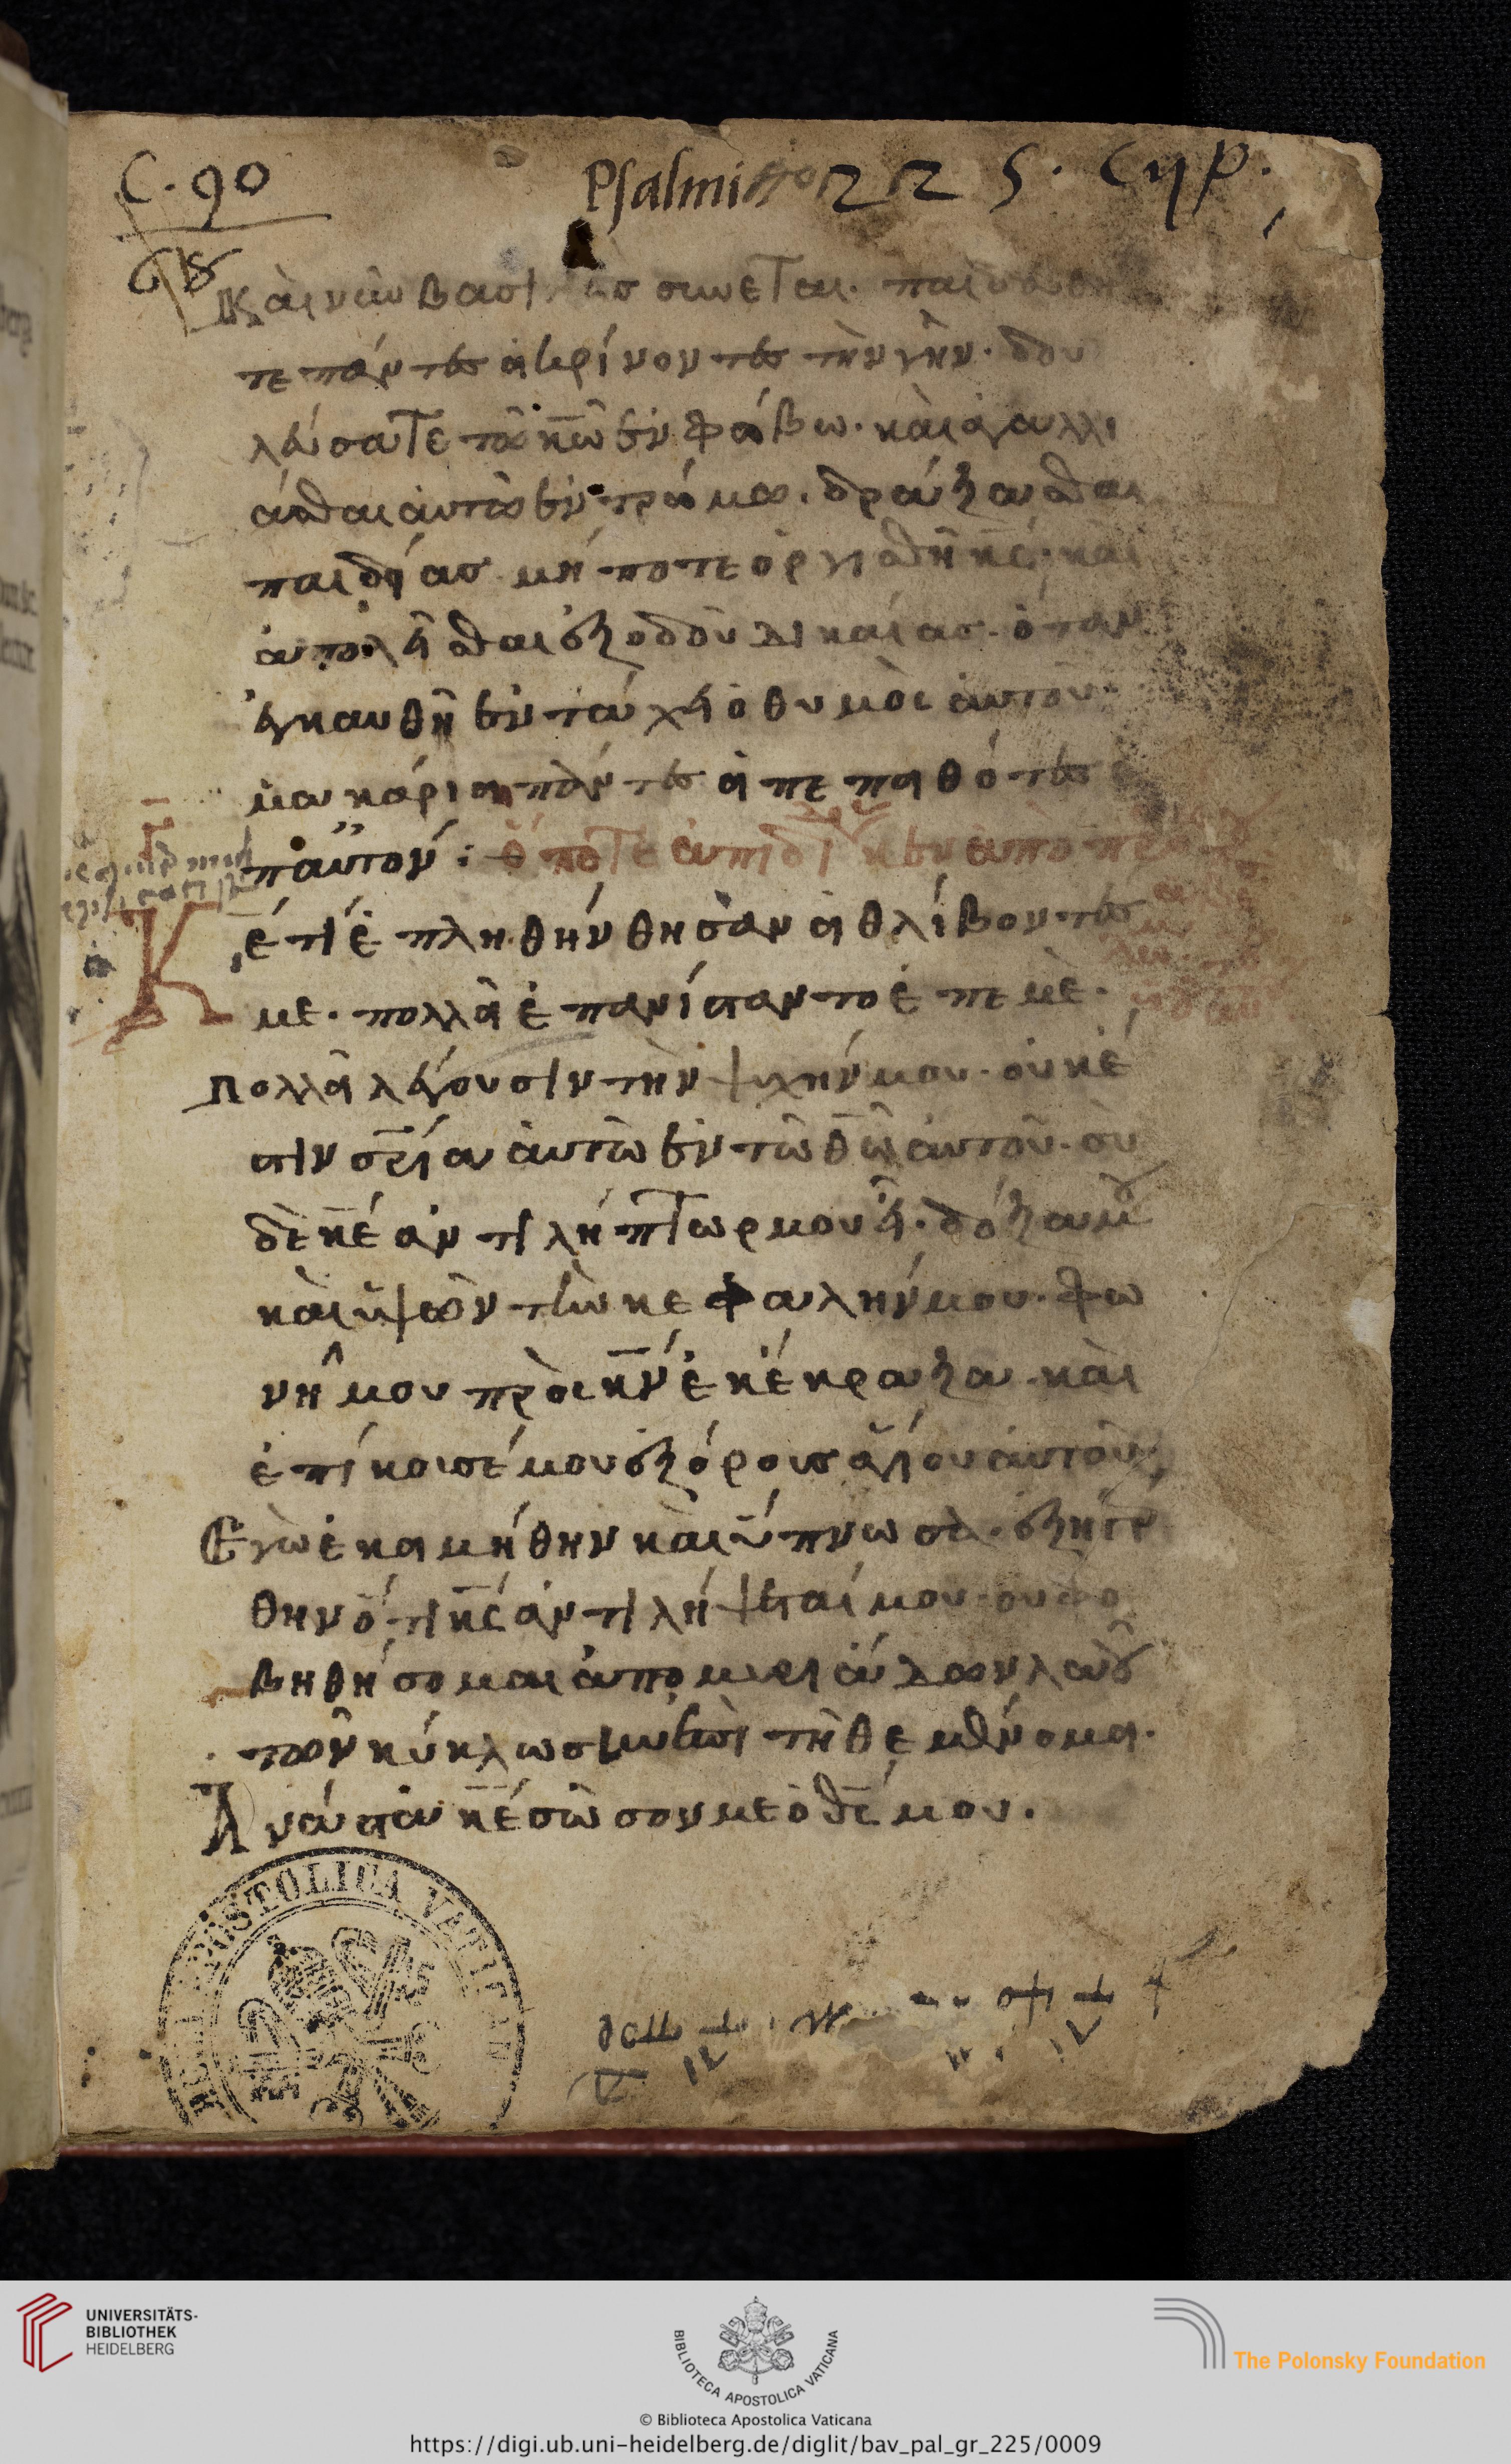 C. 90
68
Psalmi no 225. Cyp.
Καὶ νῦν βασιλεῖσ σύνεται. παιδεύθη
τε πάντεσ οἱ κρίνοντεσ τὴν γῆν. δου
λεύσατε τῶ κ̅ω̅ ἐν φόβω. καὶ ἀγαλλι
ᾶσθαι ἀυτῶ ἐν τρόμω. δράξασθαι
παιδείασ μήποτε ὀργισθῆ κ̅ς̅. καὶ
ἀπολεῖσθαι ἐξ ὁδοῦ δικαίασ. ὅταν
ἐκαυθῆ ἐν τάχει ὁ θυμὸς ἀυτοῦ.
μακάριοι πάντεσ οἱ πεποιθότεσ ἐ
π αὐτόν:
Γ
Κ̅ε̅ τί ἐπληθήνθησαν οἱ θλίβοντεσ
με. πολλοὶ ἐπανίσταντο ἐπεμὲ.
πολλοὶ λέγουσιν τὴν ψυχήν μου. οὐκ ἔ
στιν σ̅ρ̅ία ἀυτῶ ἐν τῶ θ̅ω̅ ἀυτοῦ. σὺ
δὲ κ̅ε̅ ἀντιλήπτωρ μου εἶ. δόξα μου
καὶ ὑψῶν τὴν κεφαλήν μου. φω
νῆ μου πρὸς κ̅ν̅ ἐκέκραξα. καὶ
ἐπίκουσέ μου ἐξ ὄρουσ ἁγίου ἀυτοῦ.
Εγὼ ἐκοιμήθην καὶ ὕπνωσα. ἐξηγέρ
θην ὅτι κ̅ς̅ ἀντιλήψεταί μου. ου φο
βηθήσομαι ἀπο μυριάδων λαοῦ
τῶν κύκλω συνεπι τηθεμένομοι.
Ανάστα κ̅ε̅ σῶσον με ὁ θ̅ς̅ μου.
UNIVERSITÄTS-
BIBLIOTHEK
HEIDELBERG
BIBLIOTECA APOSTOLICA VATICANA
The Polonsky Foundation
© Biblioteca Apostolica Vaticana
https://digi.ub.uni-heidelberg.de/diglit/bav_pal_gr_225/0009